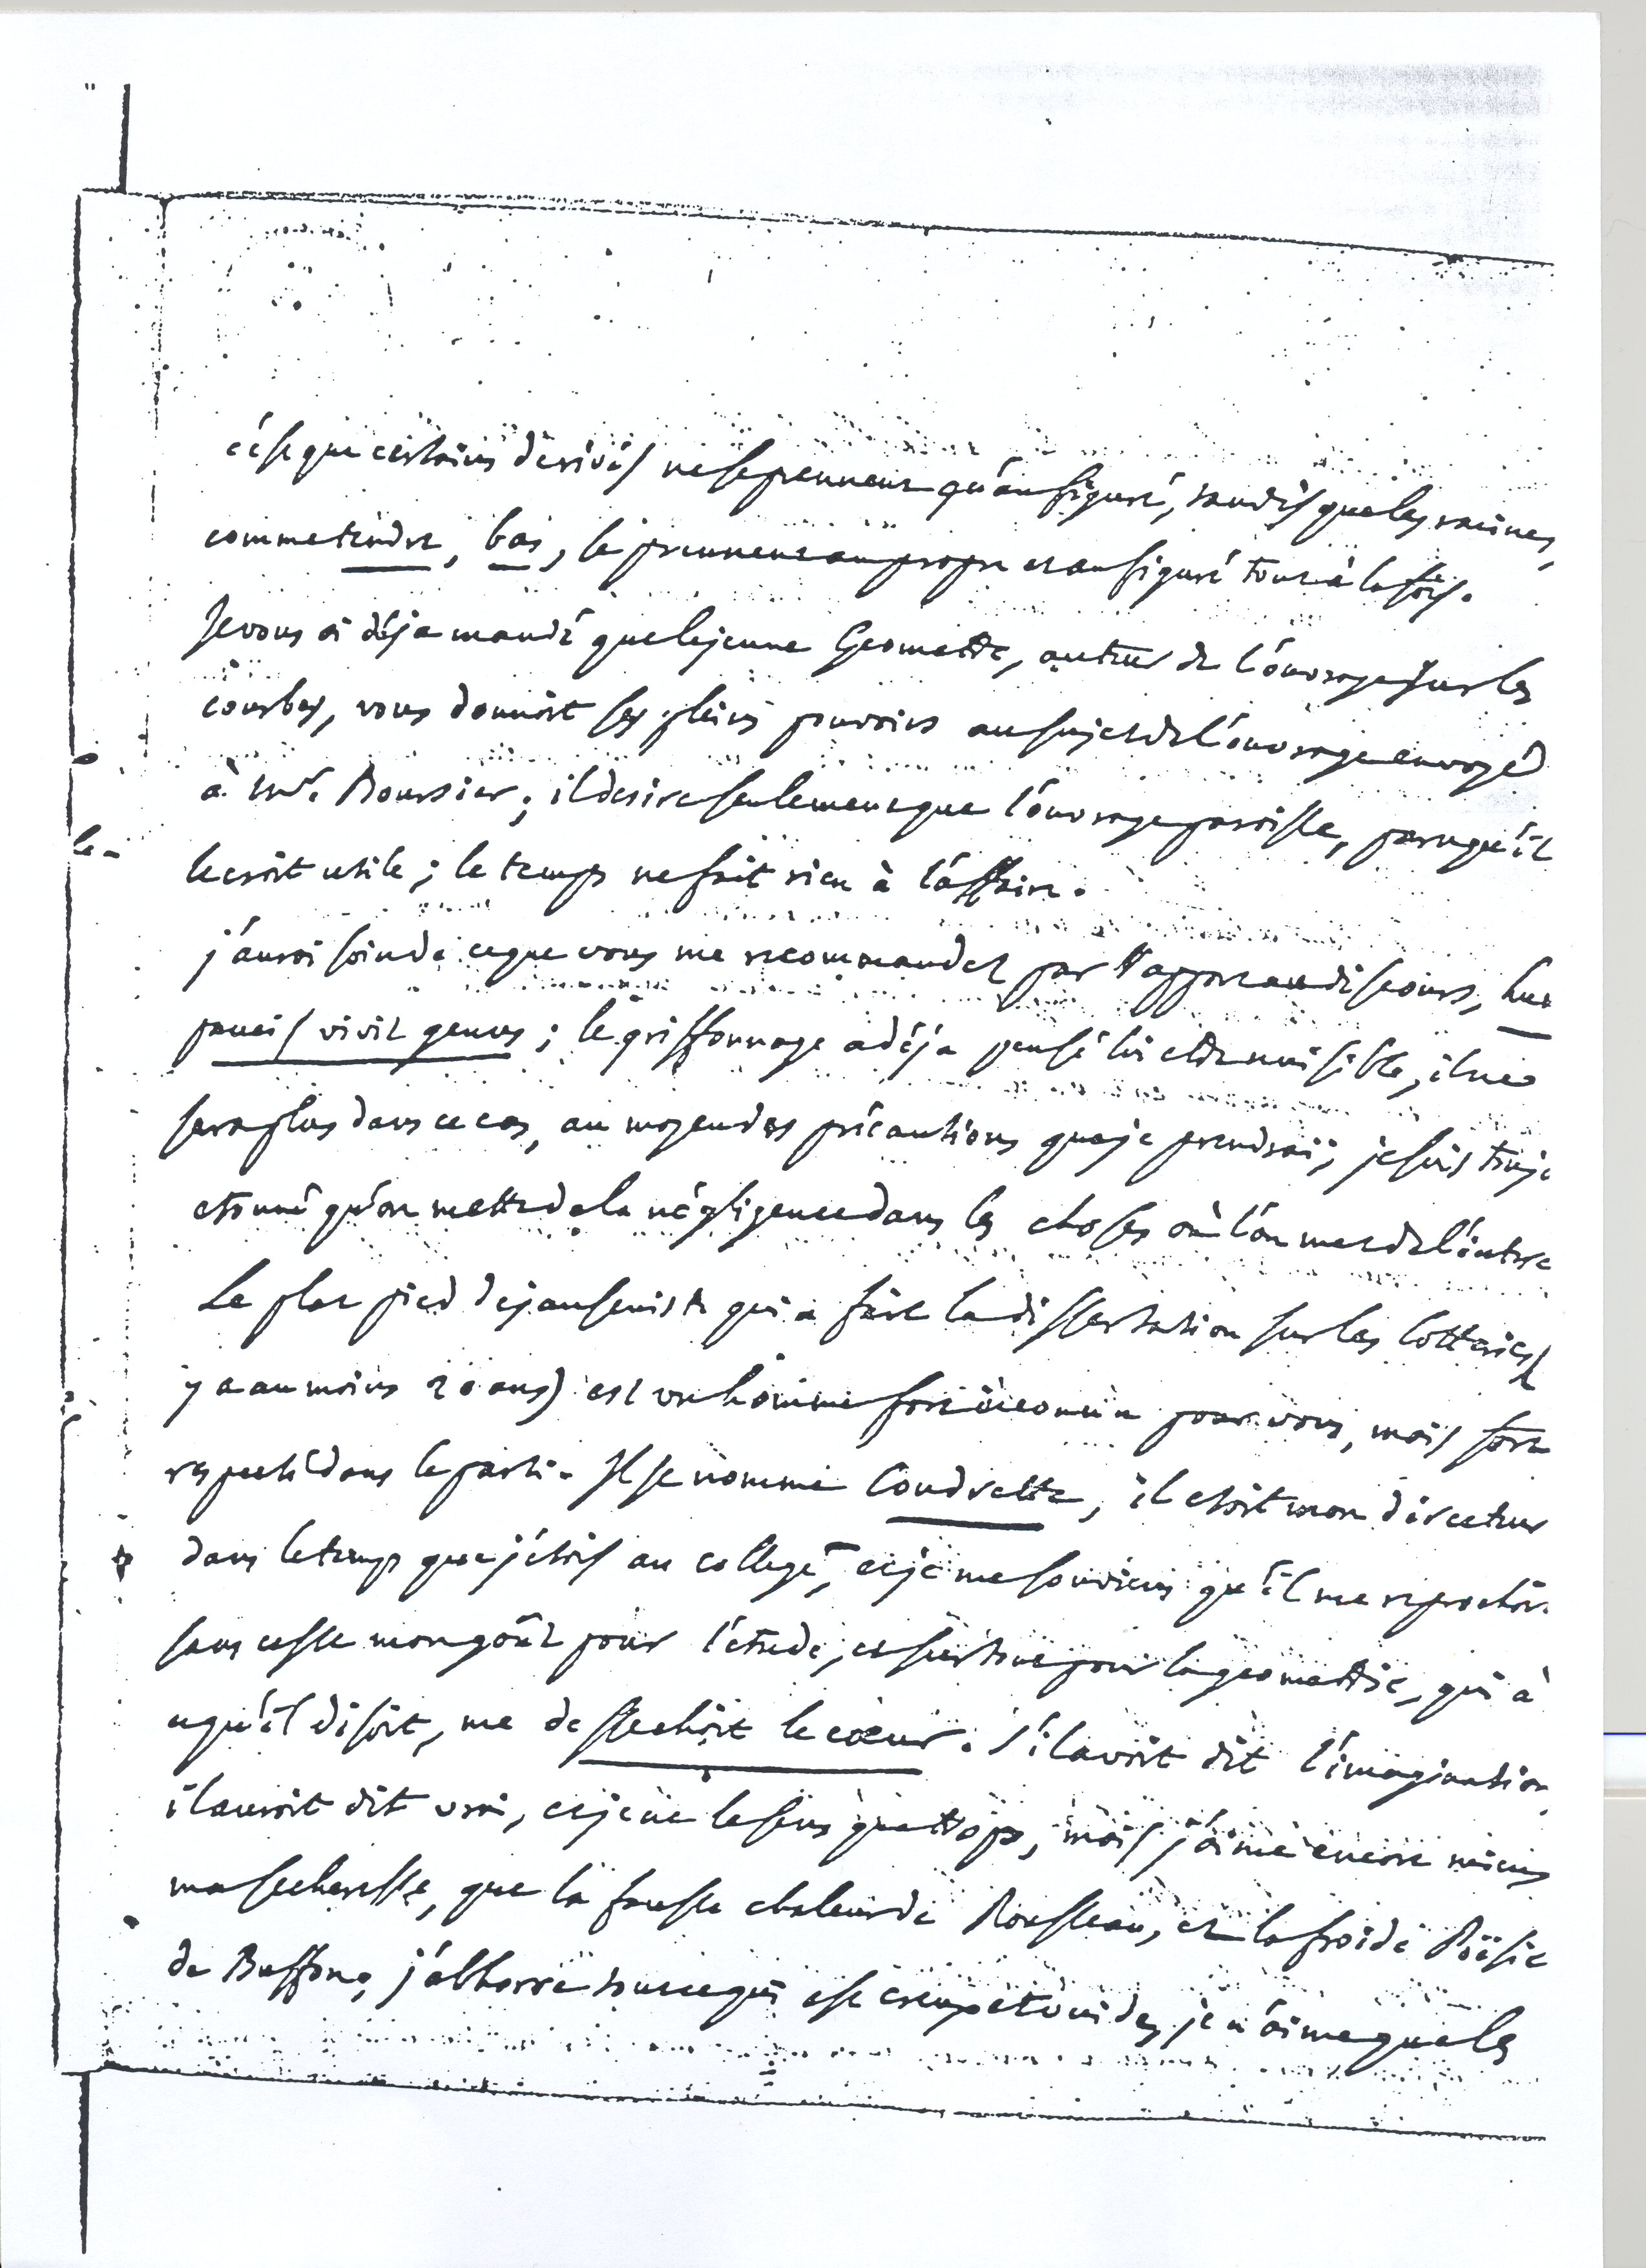 c'est que certains derivés ne se prennent qu'au figuré, tandis que les racines,
comme tendre, bas, se prennent au propre et au figuré tout à la fois.
Je vous ai déja mandé que le jeune Geometre, auteur de l'ouvrage sur les
courbes, vous donnoit ses pleins pouvoirs au sujet de l'ouvrage envoyé
à Mr. Boursier; il desire seulement que l'ouvrage paroisse, parce qu'il
le
le croit utile; le temps ne fait rien à l'affaire.
j'aurai soin de ce que vous me recommandez par rapport au discours,
paucis vivit genus; le griffonnage a déja pensé lui etre nuisible, il ne
sera plus dans ce cas, au moyen des précautions que je prendrai; je suis touj
etonné qu'on mette de la négligence dans les choses où l'on met de l'
Le plat pied de janseniste qui a fait la dissertation sur les lotteries (
y a au moins 20 ans) est un homme fort inconnu pour vous, mais fort
respecté dans le parti. Il se nomme Coudrette, il etoit mon directeur
dans le temps que j'étois au college, et je me souviens qu'il me reprochoi
sans cesse mon goût pour l'étude, et surtout pour la geometrie, qui à
ce qu'il disoit, me dessechoit le cœur. S'il avoit dit l'imagination,
il auroit dit vrai, et je ne le sens que trop, mais j'aime encore mieux
ma secheresse, que la fausse chaleur de Rousseau, et la froide Poësie
de Buffon; j'abhorre tout ce qui est creux et vuide, je n'aime que les